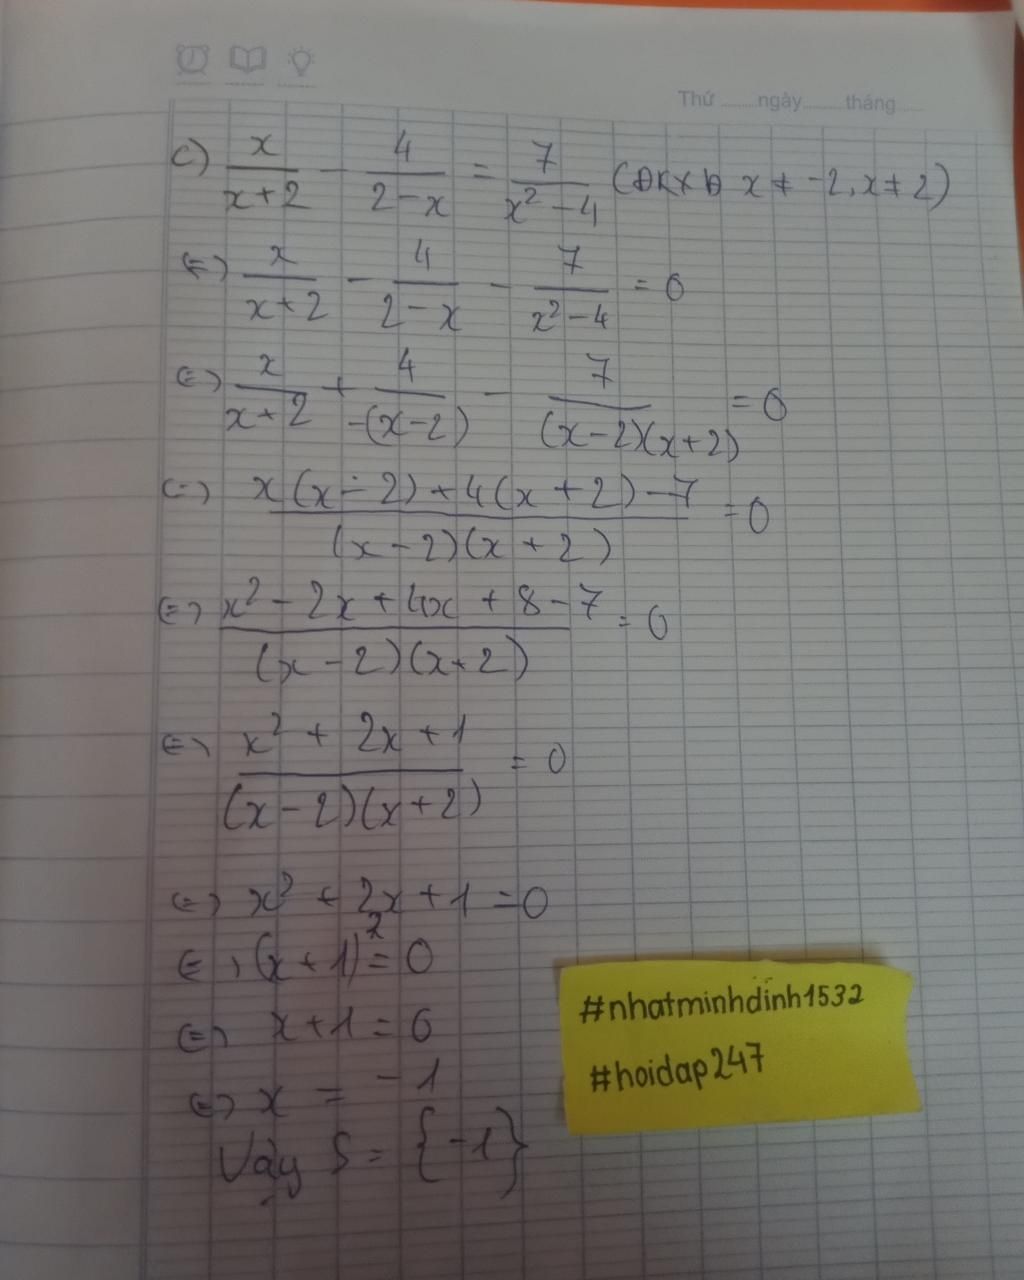 Thứ ........ngày.........tháng......
c) x/(x+2) - 4/(2-x) = 7/(x²-4) (ĐKXĐ x ≠ -2, x ≠ 2)
(=) x/(x+2) - 4/(2-x) - 7/(x²-4) = 0
(=) x/(x+2) + 4/(-(x-2)) - 7/((x-2)(x+2)) = 0
(=) (x(x-2)+4(x+2)-7)/((x-2)(x+2)) = 0
(=) (x²-2x+4x+8-7)/((x-2)(x+2)) = 0
(=) (x²+2x+1)/((x-2)(x+2)) = 0
(=) x²+2x+1=0
(=) (x+1)²=0
(=) x+1=0
(=) x = -1
Vậy S = {-1}
#nhatminhdinh1532
#hoidap247